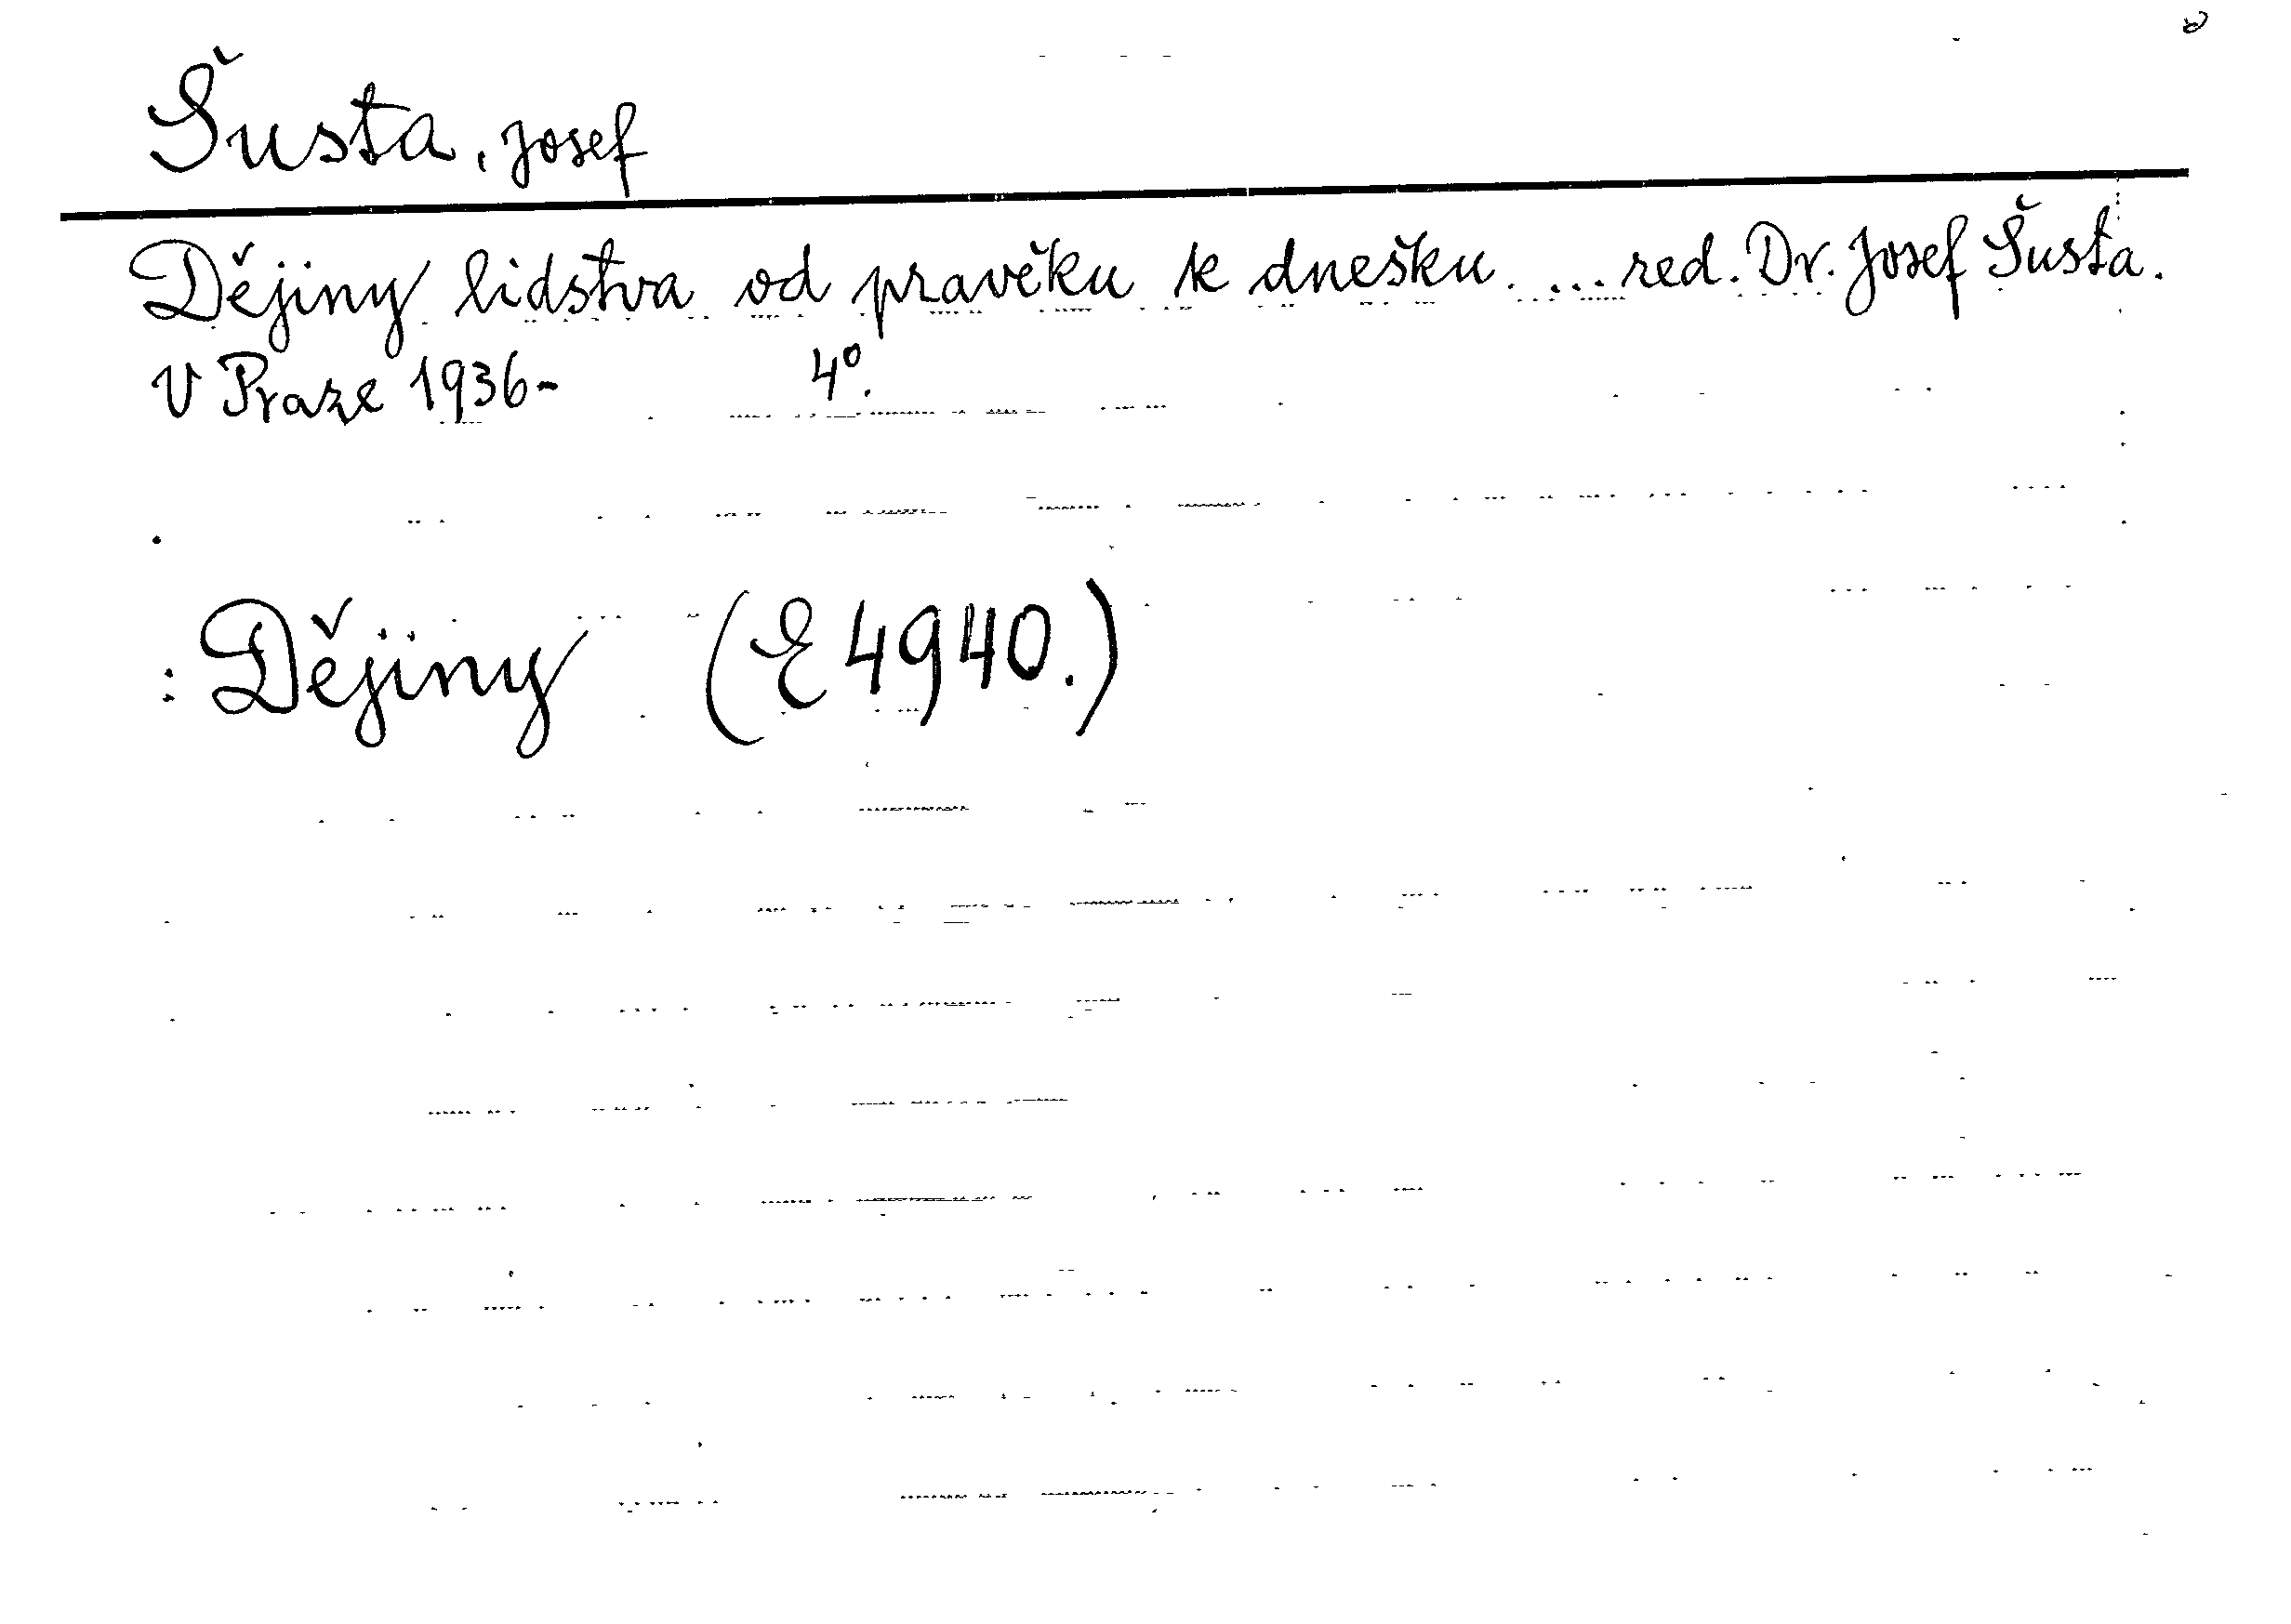 Šusta, Josef
Dějiny lidstva od pravěku k dnešku. ... red. Dr. Josef Šusta.
V Praze 1936- 4º.
: Dějiny (E 4940.)